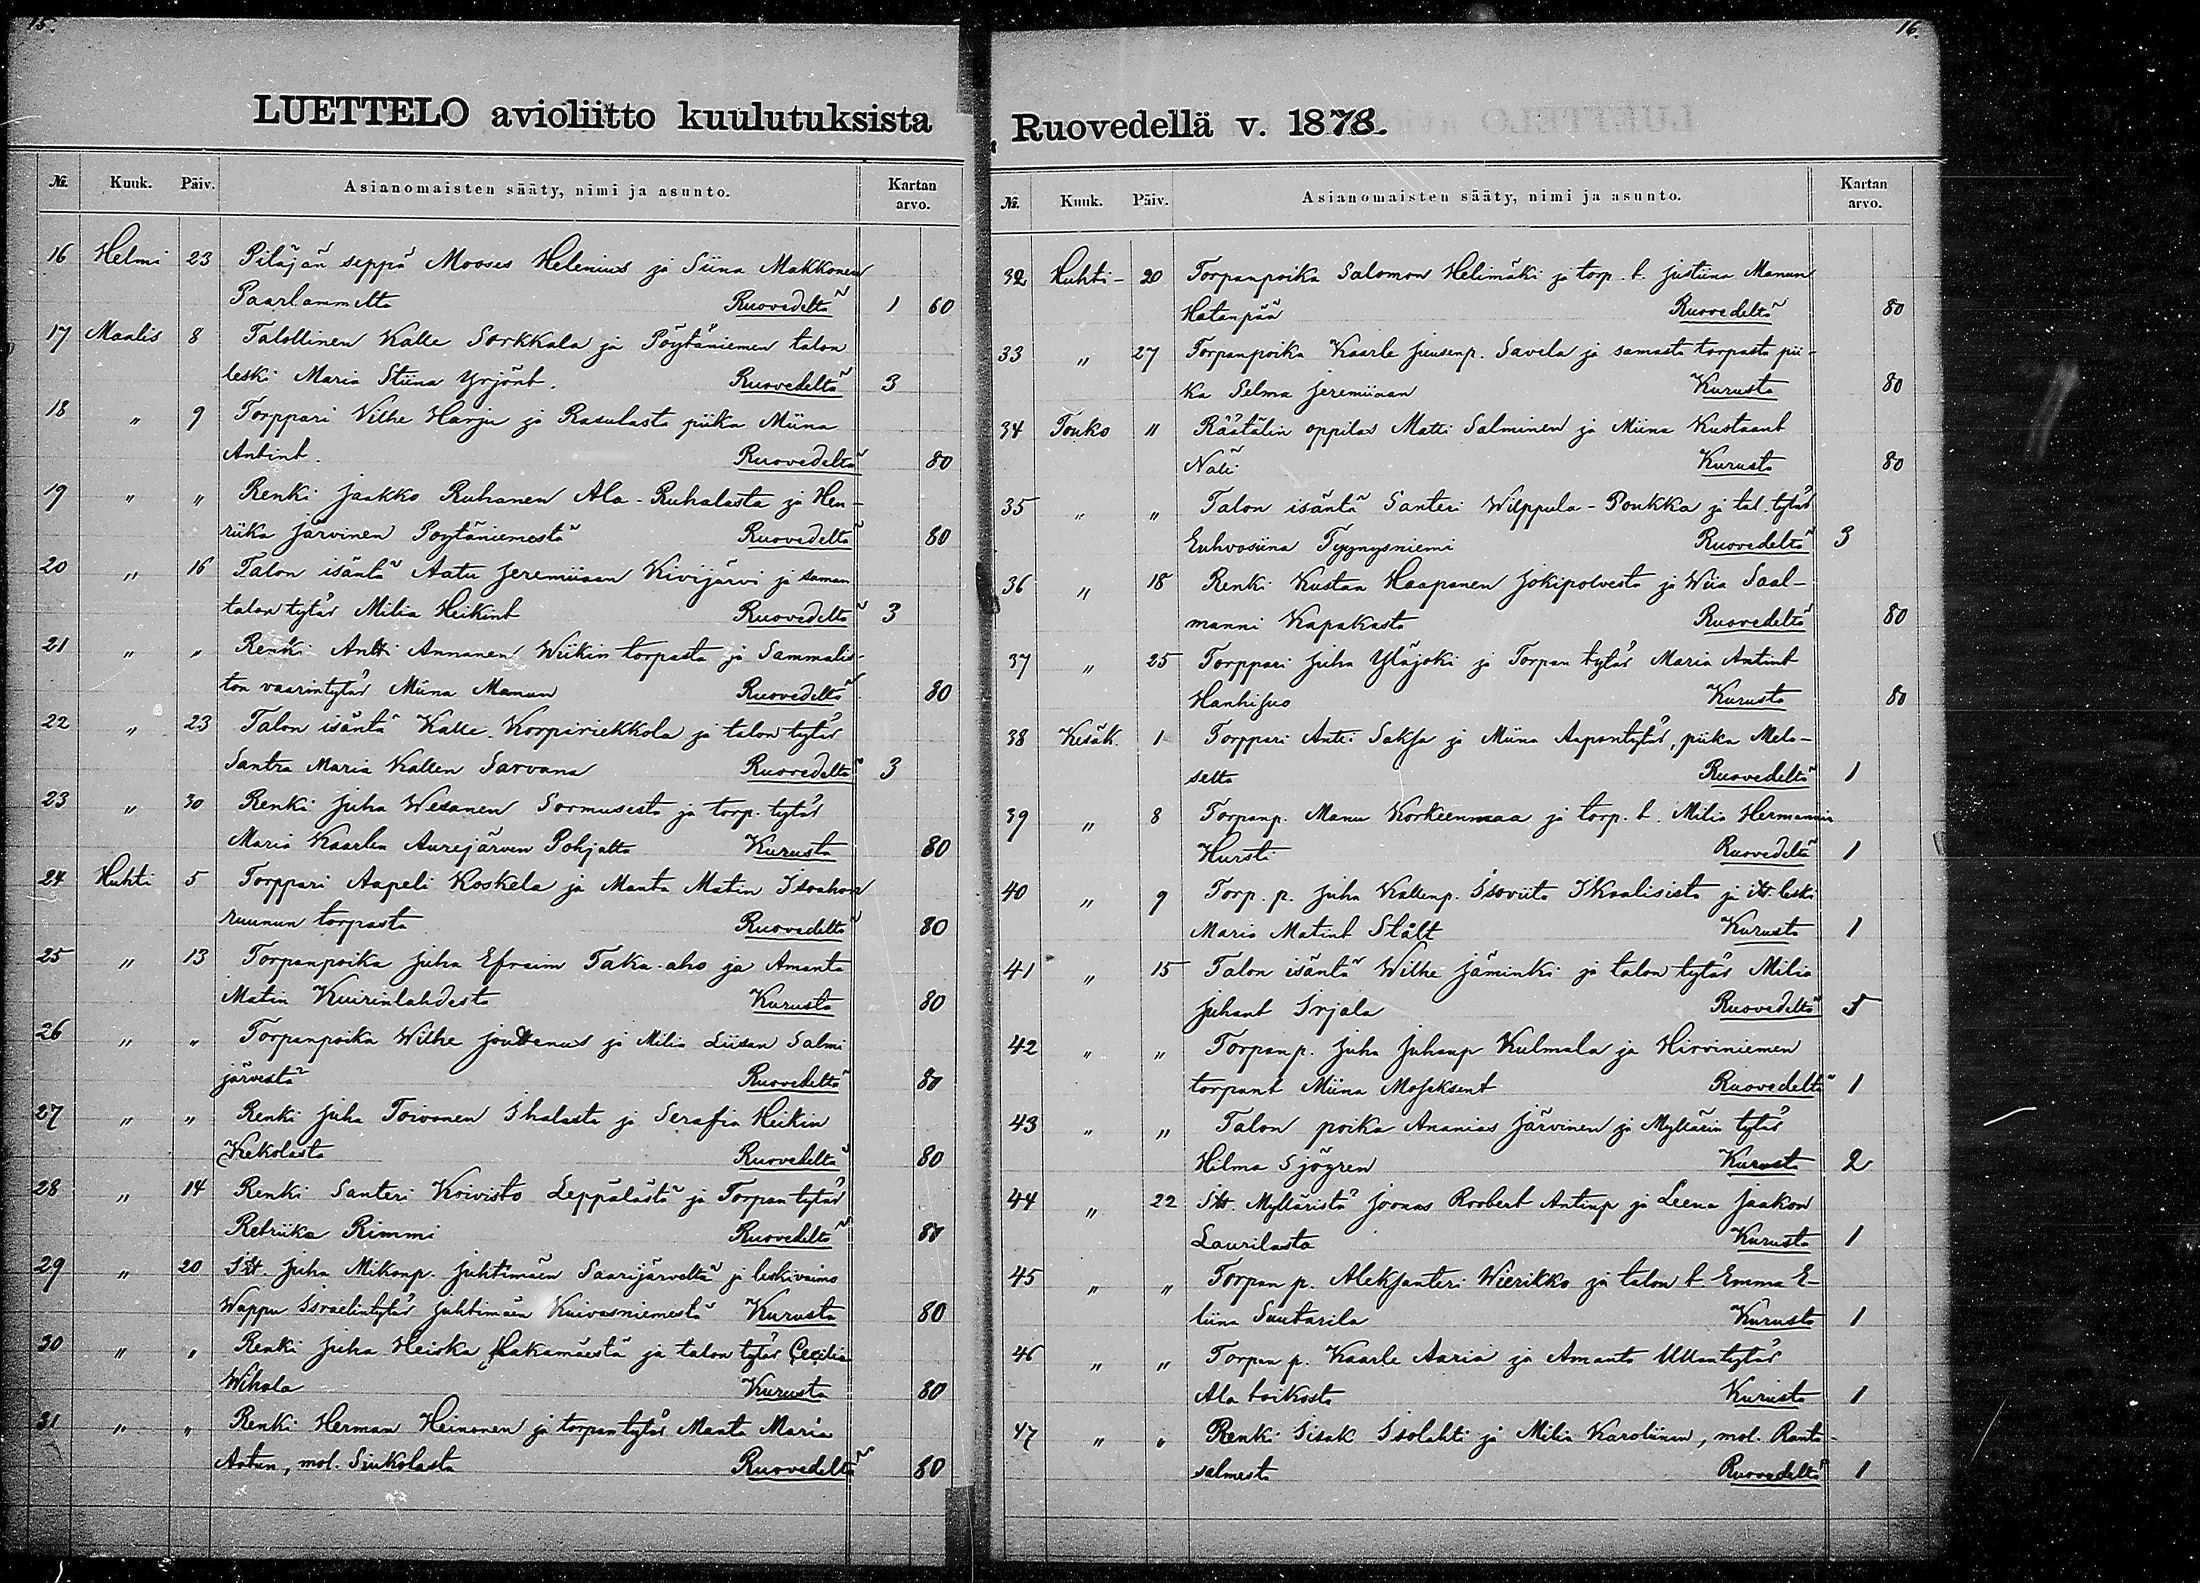 15.
LUETTELO avioliitto kuulutuksista
№. Kuuk. Päiv. Asianomaisten sääty, nimi ja asunto. Kartan arvo.
16 Helmi 23 Pitäjän seppä Mooses Helenius ja Siina Makkonen
Paarlammelta Ruovedeltä 1 60
17 Maalis 8 Talollinen Kalle Sorkkala ja Pöytäniemen talon
leski Maria Stiina Yrjönt. Ruovedeltä 3
18 " 9 Torppari Vilhe Harju ja Rasulasta piika Miina
Antint. Ruovedeltä 80
19 " " Renki Jaakko Ruhanen Ala-Ruhalasta ja Hen-
riika Järvinen Pöytäniemestä Ruovedeltä 80
20 " 16 Talon isäntä Aatu Jeremiiaan Kivijärvi ja saman
talon tytär Milia Heikint Ruovedeltä 3
21 " " Renki Antti Annanen Wiikin torpasta ja Sammalis-
ton vaarintytär Miina Manun Ruovedeltä 80
22 " 23 Talon isäntä Kalle Korpiriekkola ja talon tytär
Santra Maria Kallen Sarvana Ruovedeltä 3
23 " 30 Renki Juha Wesanen Sormusesta ja torp. tytär
Maria Kaarlen Aurejärven Pohjalta Kurusta 80
24 Huhti 5 Torppari Aapeli Koskela ja Manta Matin Isoahon
ruunun torpasta Ruovedeltä 80
25 " 13 Torpanpoika Juha Efraim Taka-aho ja Amanta
Matin Kuirinlahdesta Kurusta 80
26 " " Torpanpoika Wilhe Jouttenus ja Milia Liisan Salmi
järvestä Ruovedeltä 80
27 " " Renki Juha Toivonen Ihalasta ja Serafia Heikin
Kekolasta Ruovedeltä 80
28 " 14 Renki Santeri Koivisto Leppälästä ja Torpan tytär
Retriika Rimmi Ruovedeltä 80
29 " 20 Itt. Juha Mikonp. Juhtimäen Saarijärveltä ja leskivaimo
Wappu Israelintytär Juhtimäen Kuivasniemestä Kurusta 80
30 " " Renki Juha Heiska Hakamäestä ja talon tytär Cecilia
Wihola Kurusta 80
31 " " Renki Herman Heinonen ja torpan tytär Manta Maria
Aatun, mol. Siukolasta Ruovedeltä 80
16.
Ruovedellä v. 1878.
№. Kuuk. Päiv. Asianomaisten sääty, nimi ja asunto. Kartan arvo.
32 Huhti- 20 Torpanpoika Salomon Helimäki ja torp. t. Justiina Manun
Hatanpää Ruovedeltä 80
33 " 27 Torpanpoika Kaarle Juusenp. Savela ja samasta torpasta pii-
ka Selma Jeremiiaan Kurusta 80
34 Touko 11 Räätälin oppilas Matti Salminen ja Miina Kustaant
Nali Kurusta 80
35 " " Talon isäntä Santeri Wilppula-Poukka ja tal. tytär
Euhvosiina Tyynysniemi Ruovedeltä 3
36 " 18 Renki Kustaa Haapanen Jokipolvesta ja Wiia Saal-
manni Kapakasta Ruovedeltä 80
37 " 25 Torppari Juha Yläjoki ja Torpan tytär Maria Antint
Hanhisuo Kurusta 80
38 Kesäk. 1 Torppari Antti Saksa ja Miina Aapontytär, piika Mela-
selta Ruovedeltä 1
39 " 8 Torpanp. Manu Korkeenmaa ja torp. t. Milia Hermannin
Hursti Ruovedeltä 1
40 " 9 Torp. p. Juha Kallenp. Isoviita Ikaalisista ja itt. leski
Maria Matint Stålt Kurusta 1
41 " 15 Talon isäntä Wilhe Jäminki ja talon tytär Milia
Juhant Irjala Ruovedeltä 5
42 " " Torpanp. Juha Juhanp Kulmala ja Hirviniemen
torpant Miina Moseksent Ruovedeltä 1
43 " " Talon poika Ananias Järvinen ja Myllärin tytär
Hilma Sjögren Kurusta 2
44 " 22 Itt. Mylläristä Joonas Roobert Antinp ja Leena Jaakon
Laurilasta Kurusta 1
45 " " Torpan p. Aleksanteri Wierikko ja talon t. Emma E-
liina Suutarila Kurusta 1
46 " " Torpan p. Kaarle Aaria ja Amanta Ullantytär
Ala toikosta Kurusta 1
47 " " Renki Iisak Isolahti ja Milia Karoliinan, mol. Ranta-
salmesta Ruovedeltä 1